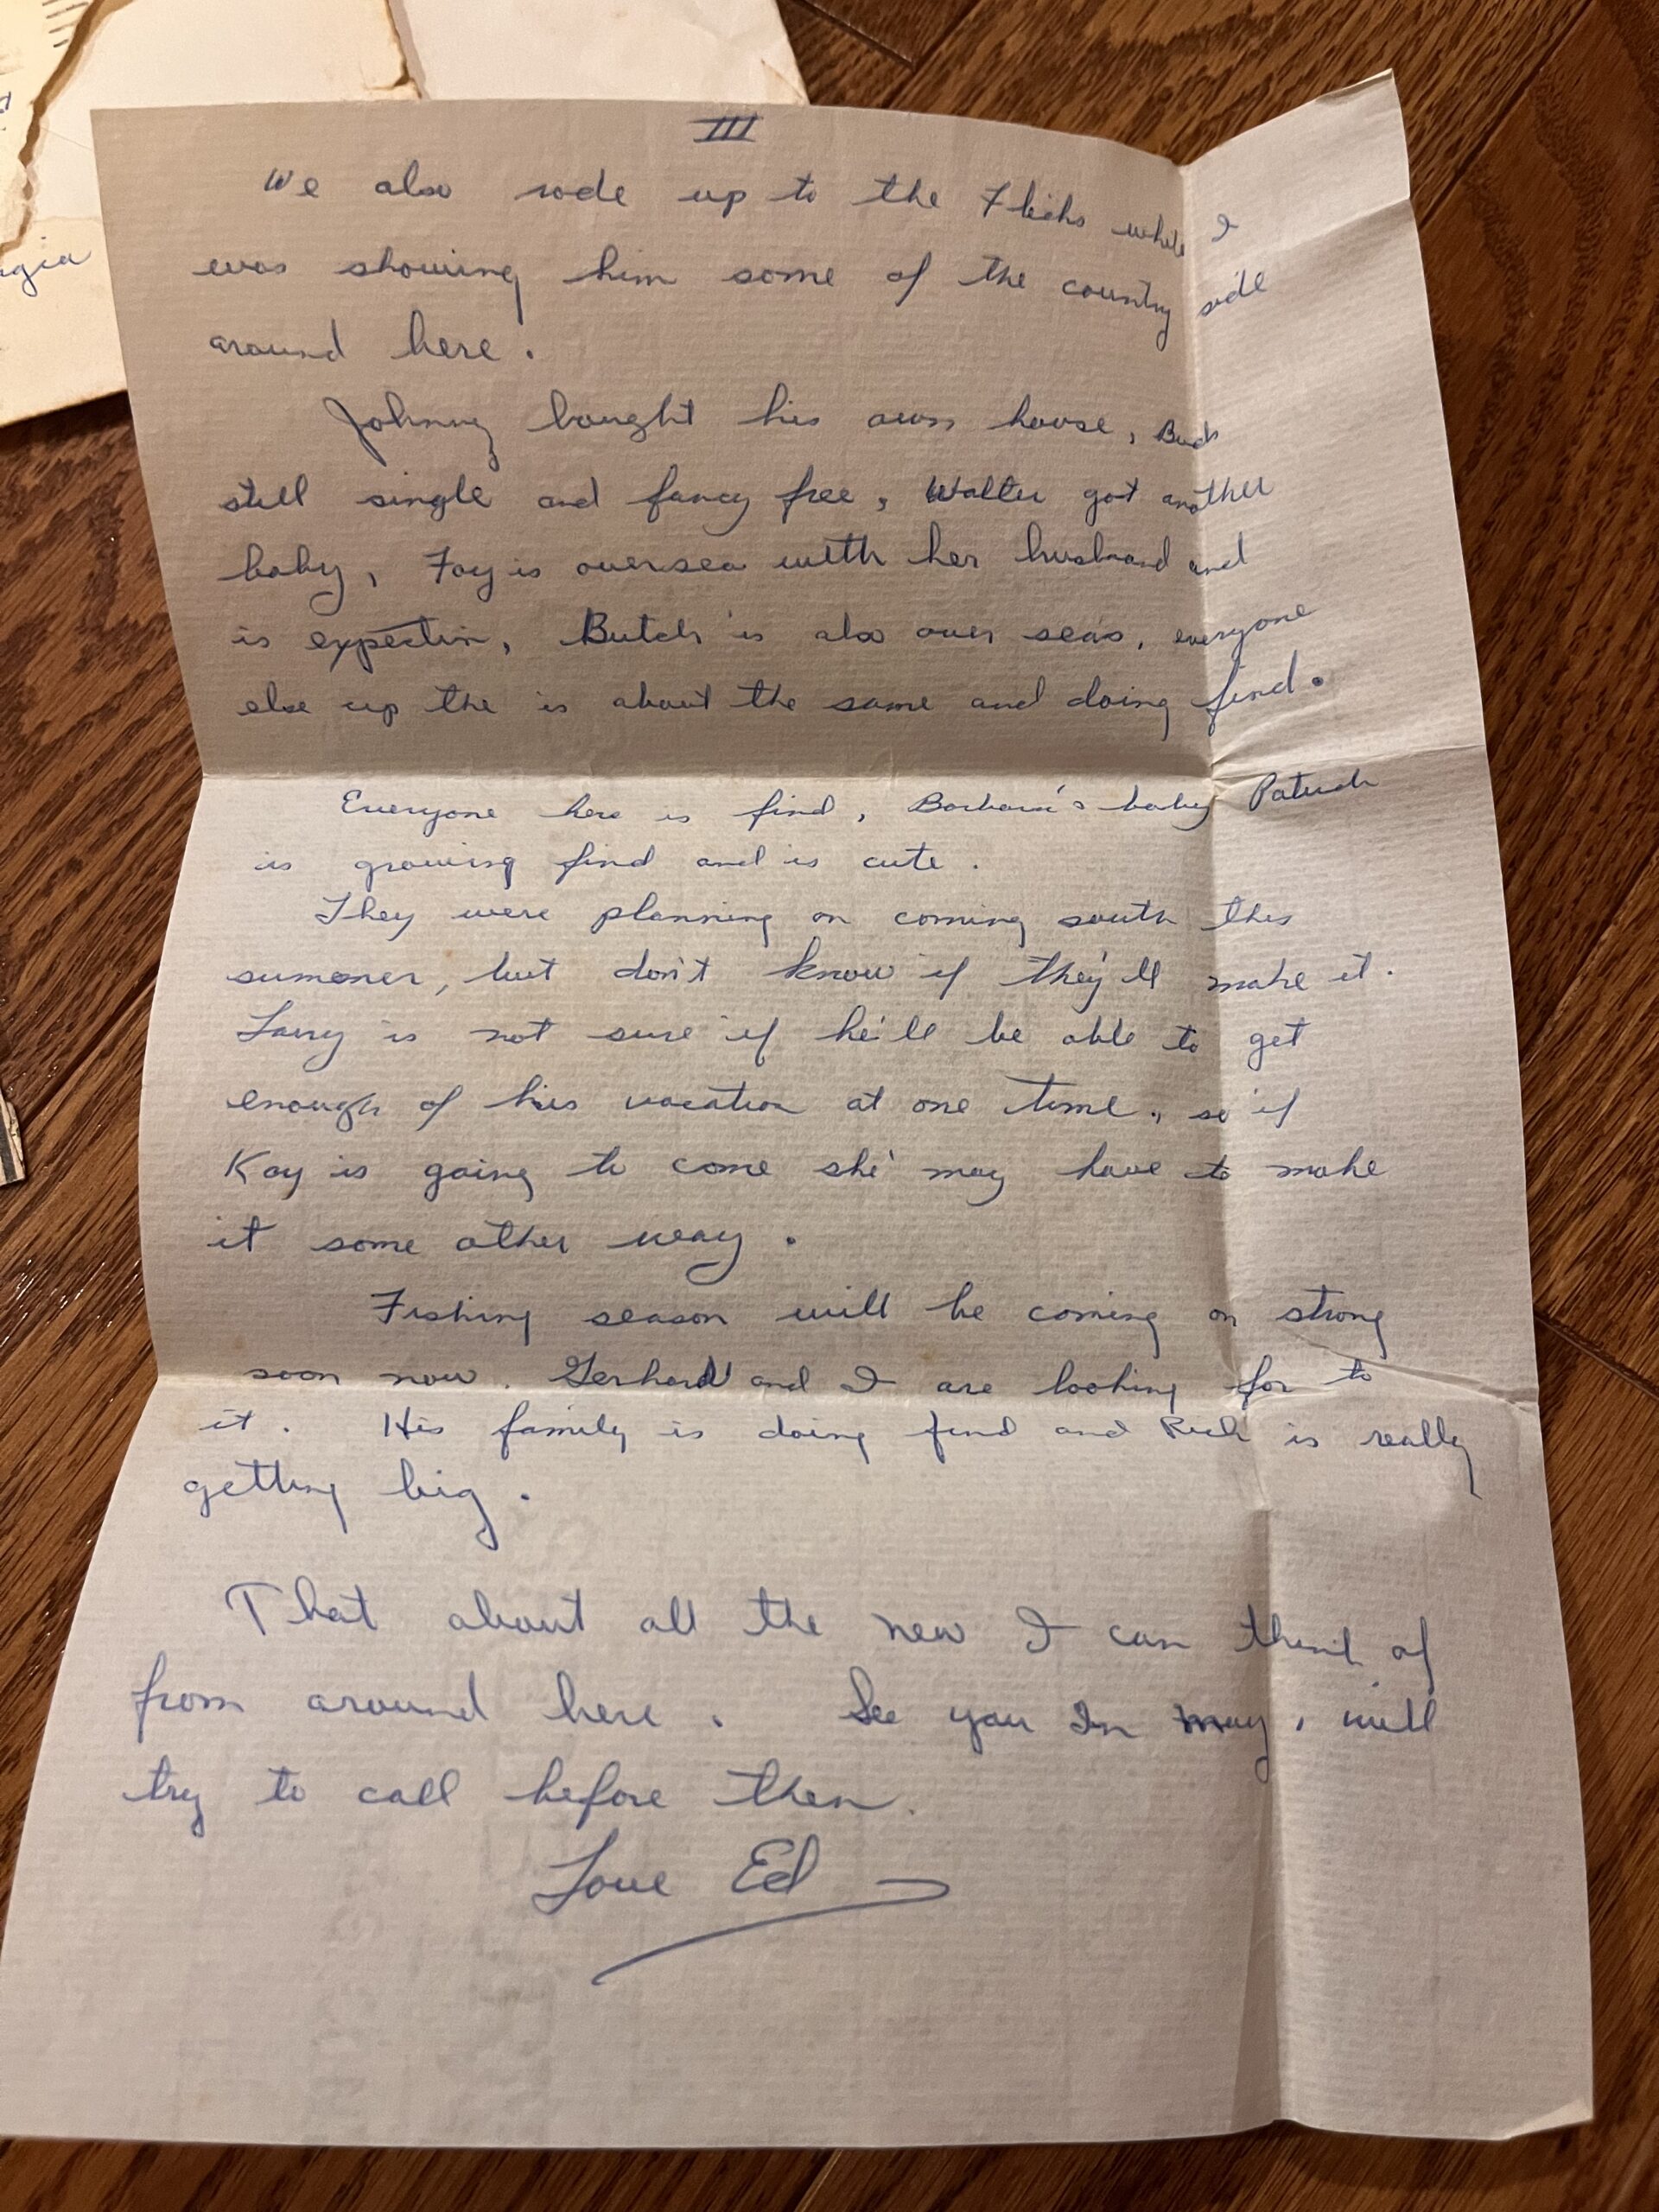 III
We also rode up to the Flicks while I
was showing him some of the country side
around here.
Johnny bought his own house, Bud
still single and fancy free, Walter got another
baby, Fay is oversea with her husband and
is expectin, Butch is also over seas, everyone
else up the is about the same and doing find.
Everyone here is find, Barbara's baby
is growing find and is cute.
They were planning on coming south this
summer, but don't know if they'll make it.
Larry is not sure if he'll be able to get
enough of his vacation at one time, so if
Kay is going to come she may have to make
it some other way.
Fishing season will be coming on strong
soon now. Gerhard and I are looking for to
it. His family is doing find and Rich is really
getting big.
That about all the new I can think of
from around here. See you In May, will
try to call before then.
Love Ed
gia